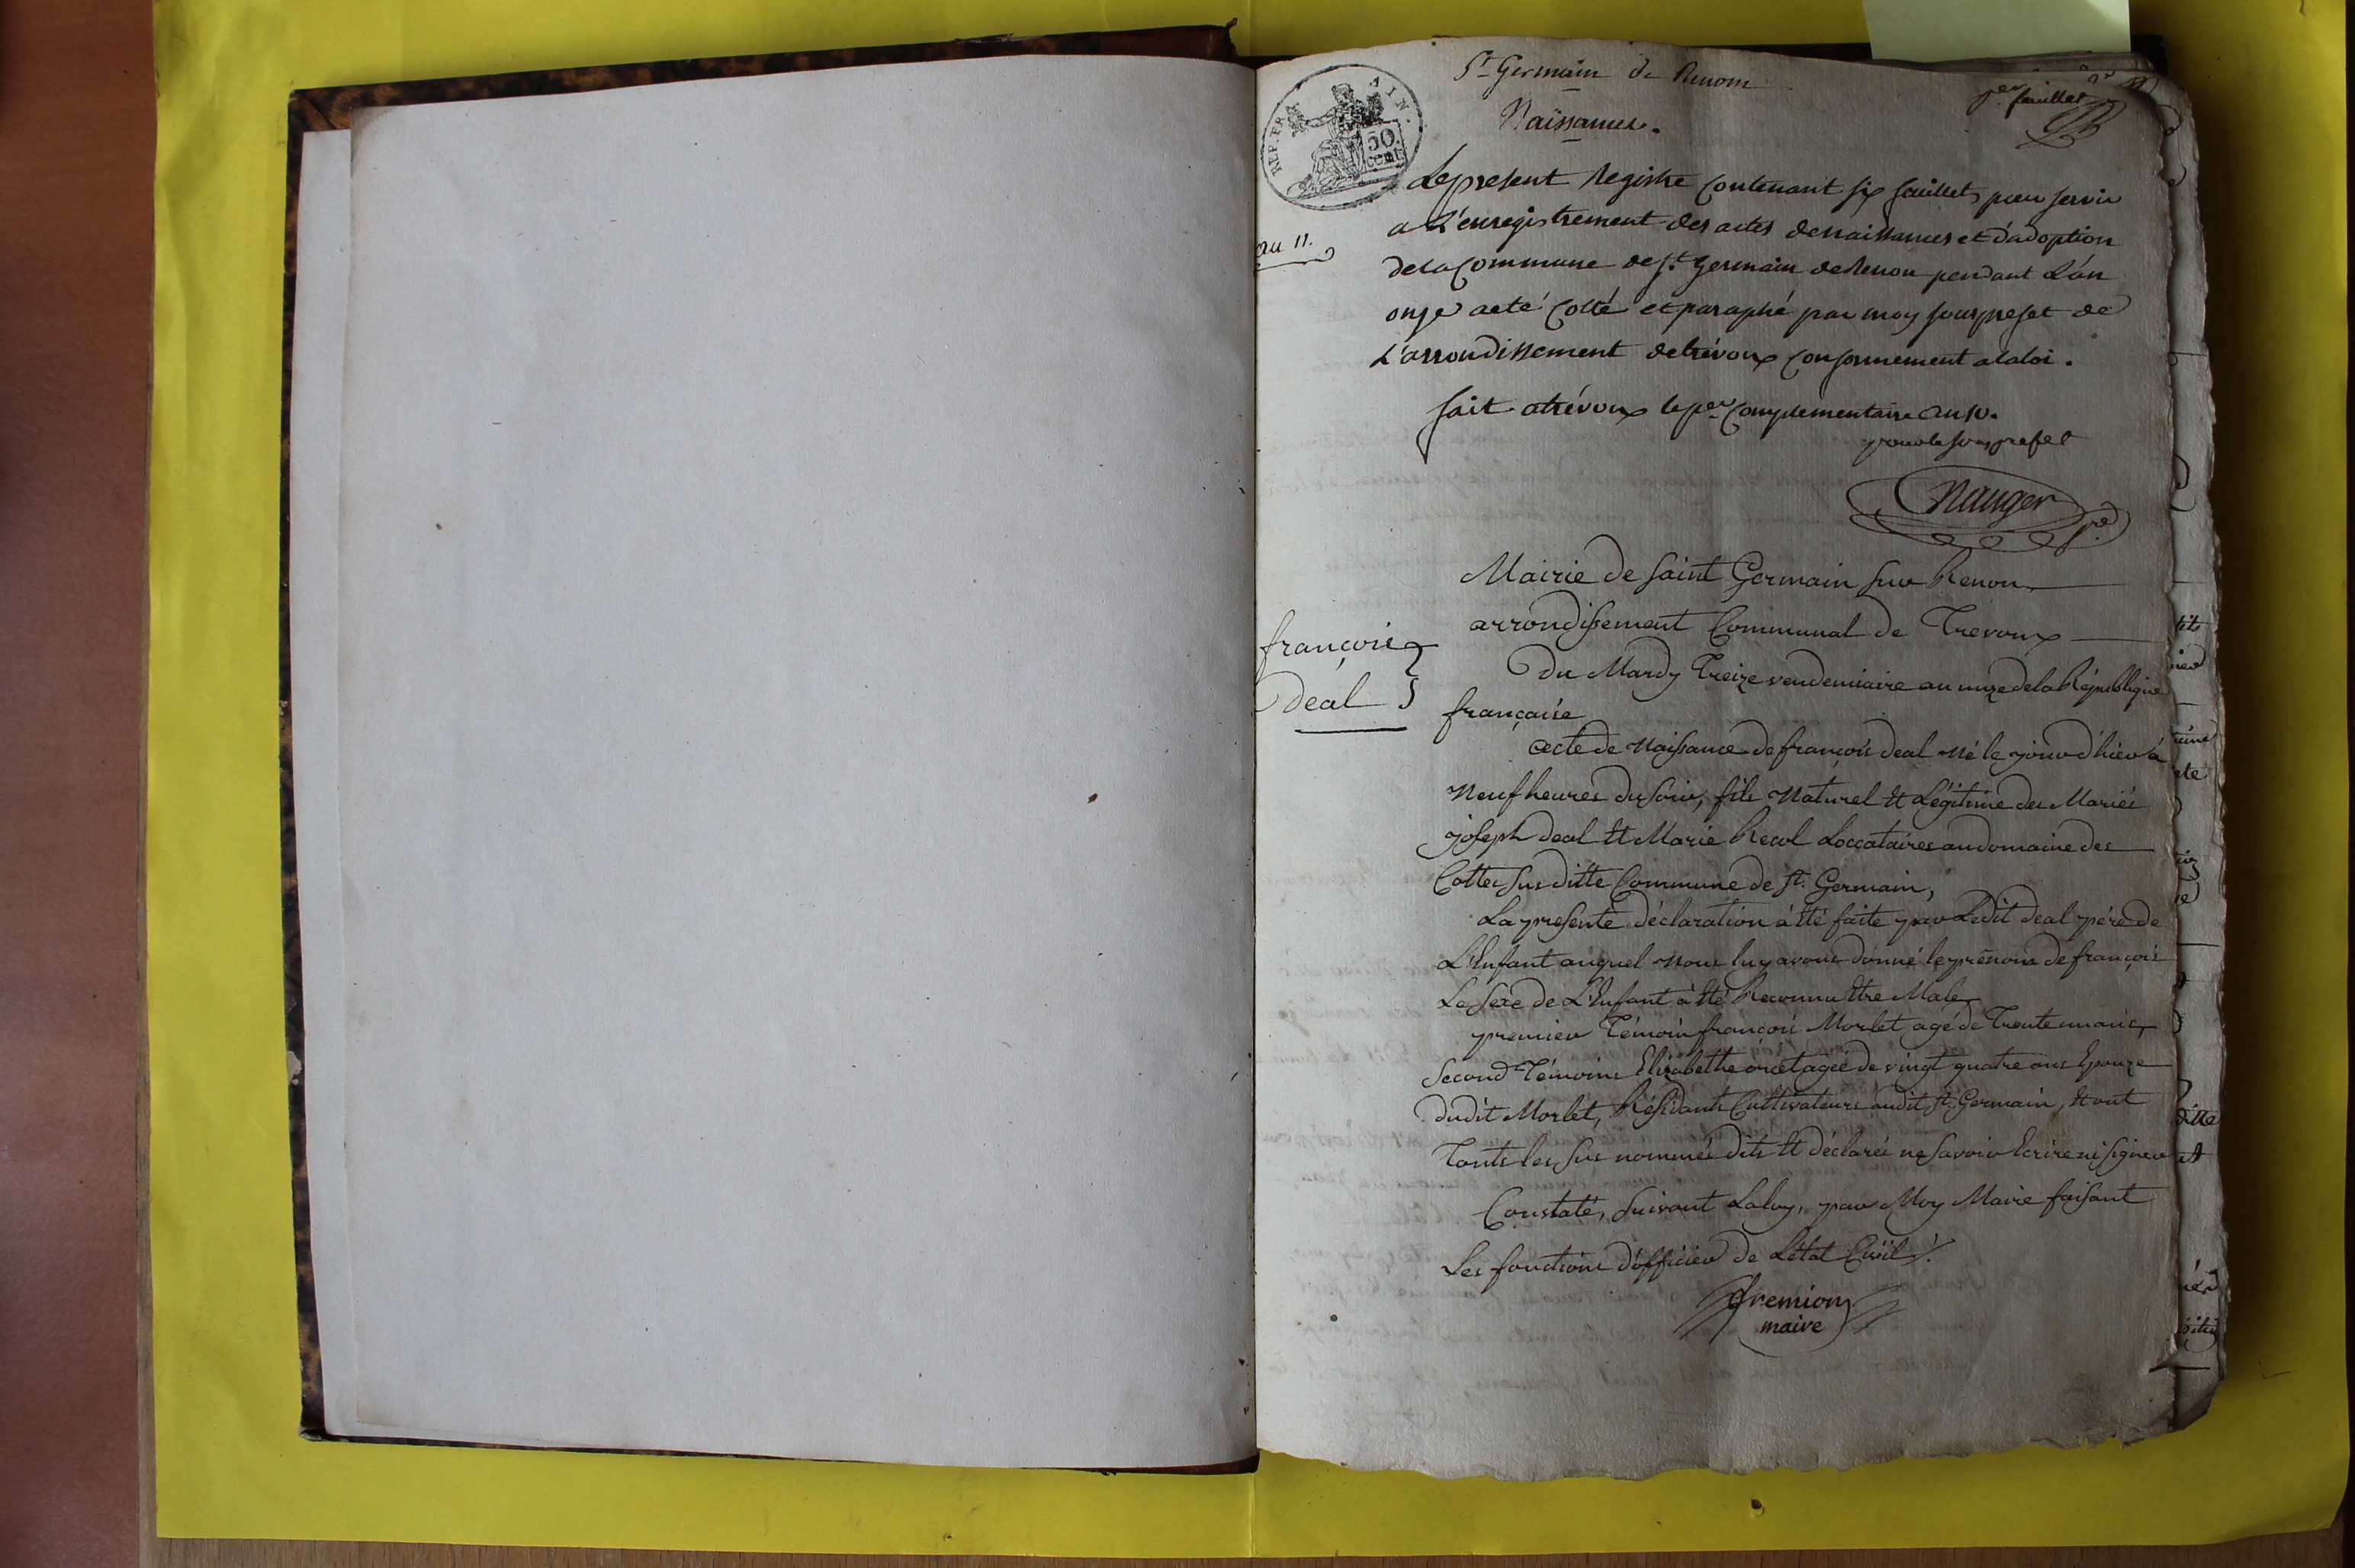 St Germain de Renom
per feuillet
Naissances.
REP. FRA. AIN. 50. cent.
Le present Registre Contenant six feuillets pour servir
a L'enregistrement des actes de naissances et d'adoption
de la Commune de St. Germain de Renon pendant L'an
onze a eté Cotté et paraphé par moy sous prefet de
L'arrondissement de trévoux Conformement a la loi.
an 11.
fait a trévoux le per Complementaire an 10.
pour le sous prefet
Mairie de Saint Germain sur Renon
arrondissement Communal de Trevoux
françois
Deal
Du Mardy Treize vendemiaire an unze de la République
française
acte de Naissance de françois deal né le jour d'hier à
Neuf heures du soir, fils Naturel Et Légitime des Mariés
joseph deal Et Marie Recol Loccataires au domaine des
Cottes sus ditte Commune de St. Germain,
La presente déclaration à Eté faite par Ledit deal père de
L'Enfant auquel nous luy avons donné le prénom de françois
Le Sexe de L'Enfant à Eté Reconnu Etre Male,
premier Témoin françois Morlet, agé de Trente
Second Témoins Elizabethe agée de vingt quatre ans Epouze
dudit Morlet, Résidants Cultivateurs audit St. Germain, Et ont
Touts les sus nommés dits Et déclarés ne savoir Ecrire ni signer
Constaté, Suivant La loy, par Moy Maire faisant
Les fonctions d'officier de L'état Civil ./.
fremion
maire